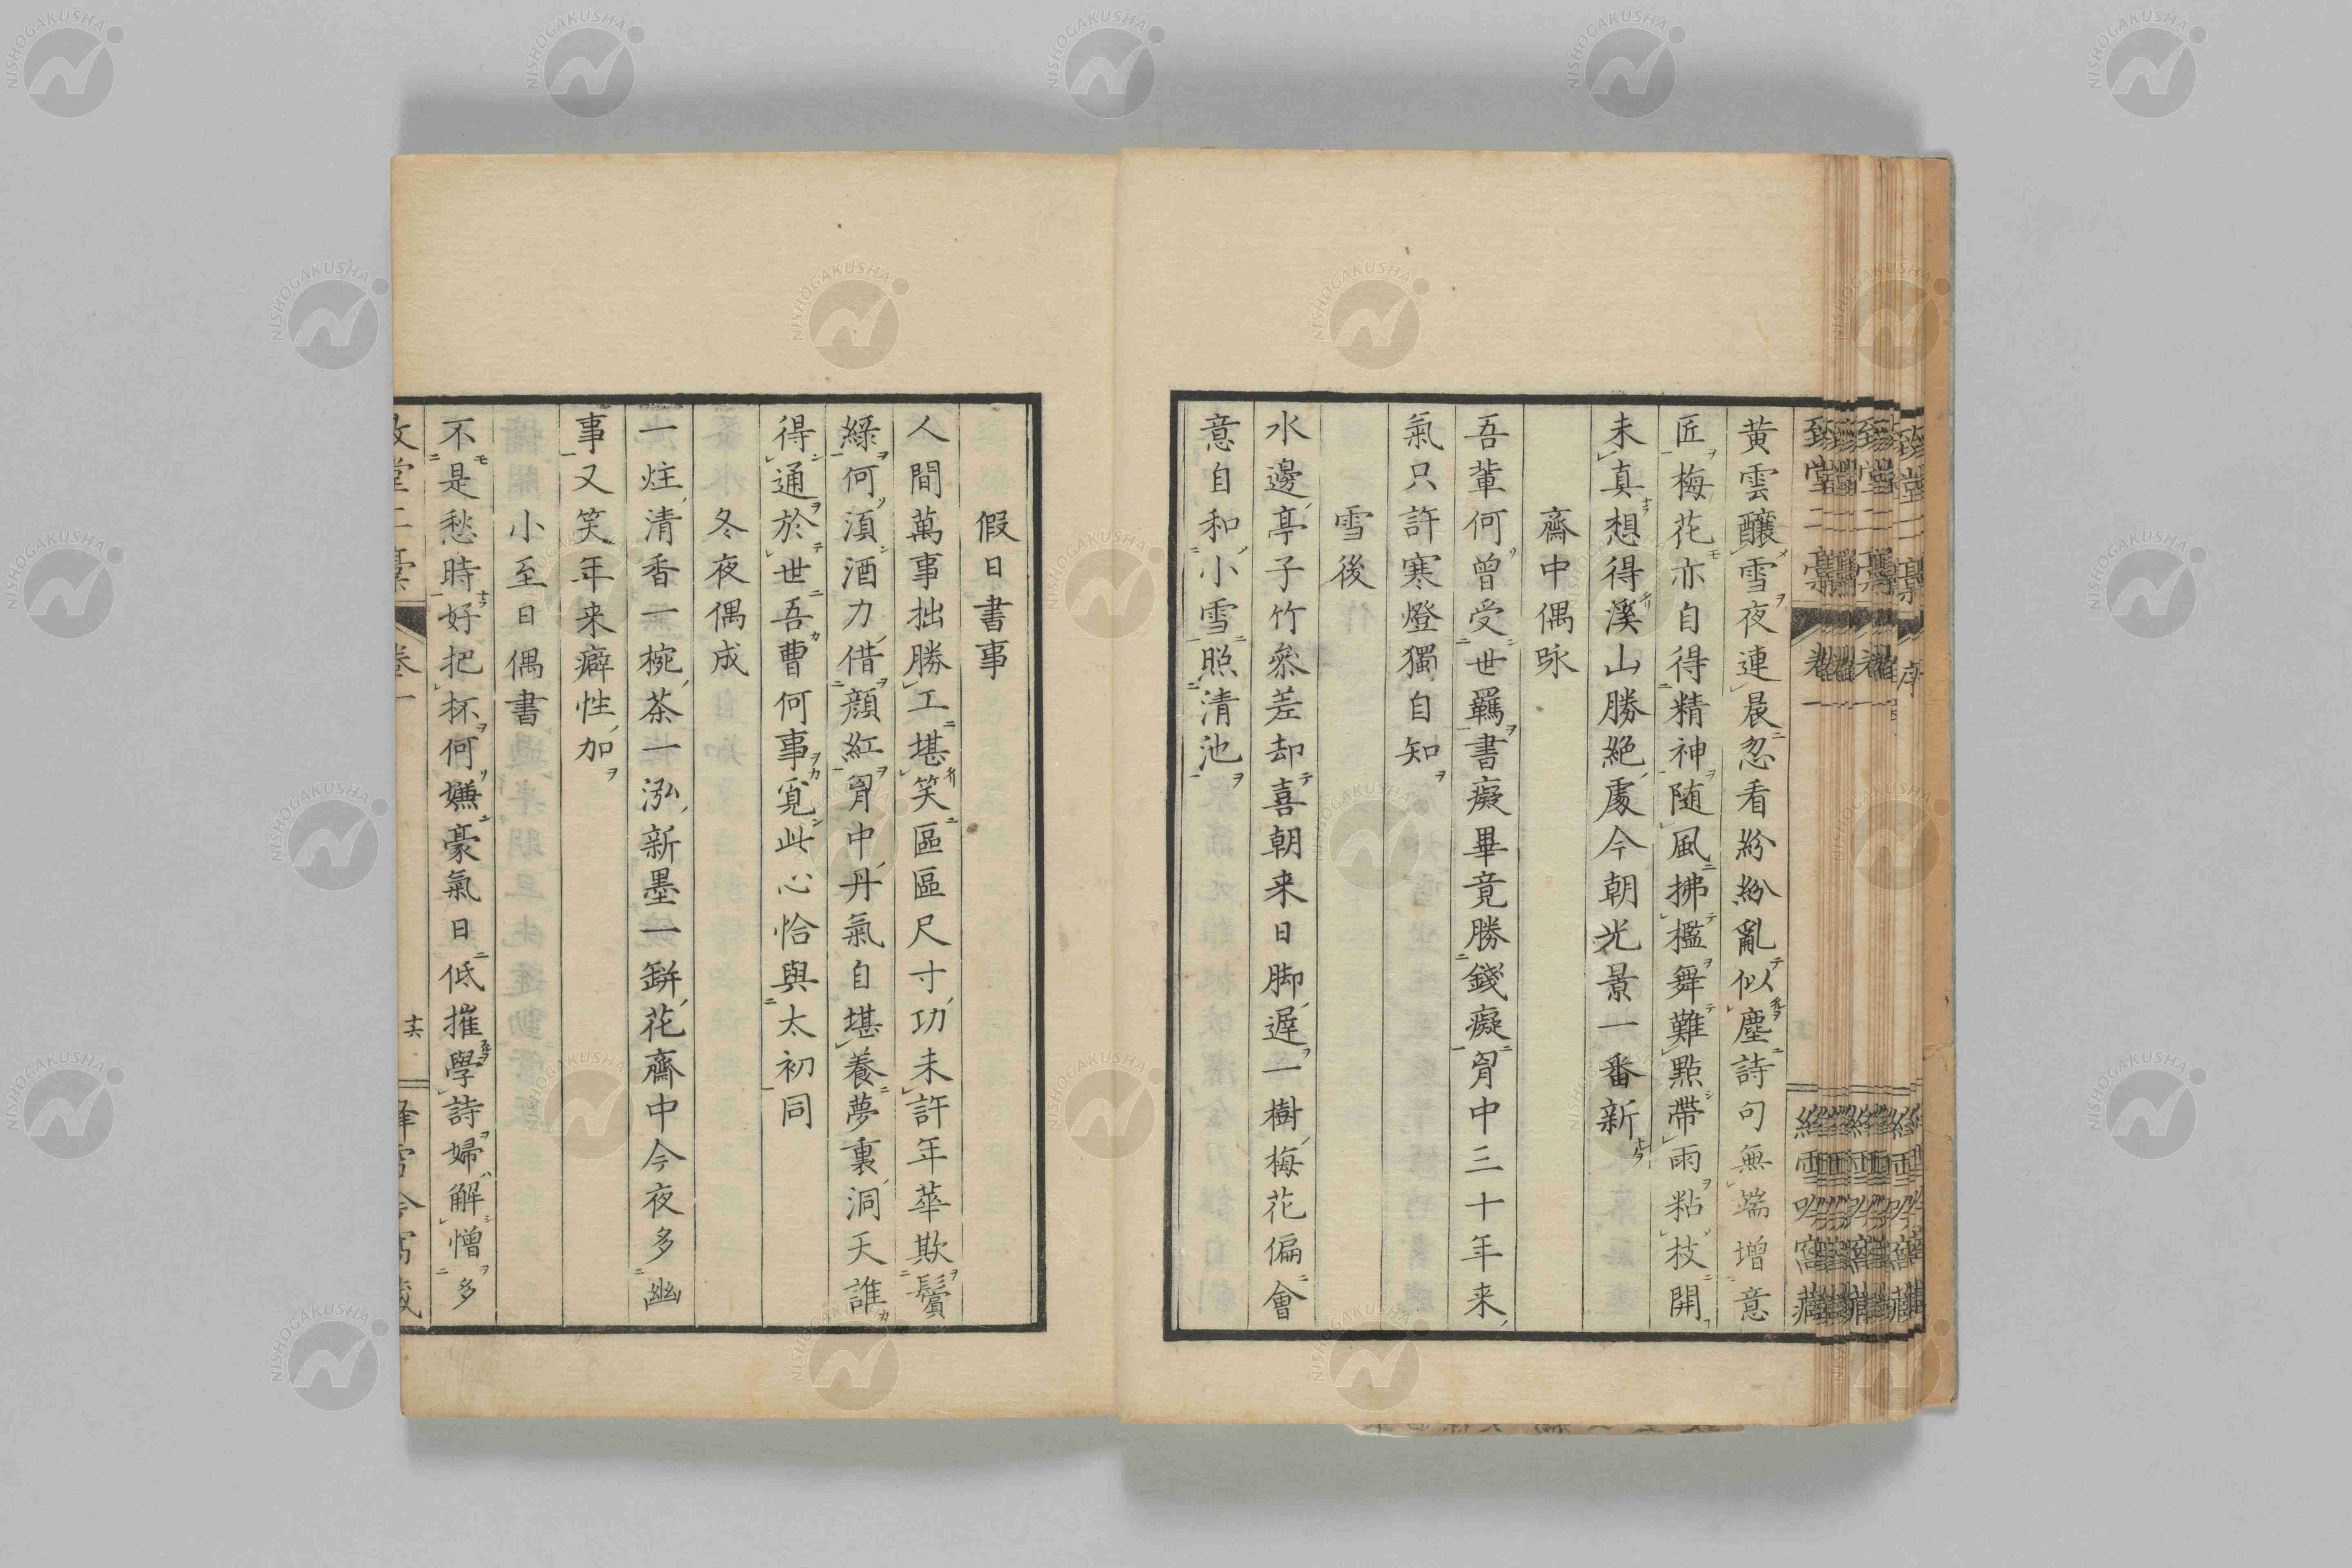 黄雲釀雪夜連晨忽看紛紛亂似塵詩句無端增意
匠梅花亦自得精神随風拂檻舞難點帶雨粘枝開
未真想得溪山勝絕處今朝光景一番新
齋中偶咏
吾輩何曾受世羈書癡畢竟勝錢癡胷中三十年来
氣只許寒燈獨自知
雪後
水邊亭子竹叅差却喜朝来日脚遲一樹梅花偏會
意自和小雪照清池
假日書事
人間萬事拙勝工堪笑區區尺寸功未許年華欺鬢
綠何須酒力借顏紅胷中丹氣自堪養夢裏洞天誰
得通於世吾曹何事覓此心恰與太初同
冬夜偶成
一炷清香一椀茶一泓新墨一缾花齋中今夜多幽
事又笑年来癖性加
小至日偶書
不是愁時好把杯何嫌豪氣日低摧學詩婦解憎多
卷一
十六
NISHOGAKUSHA